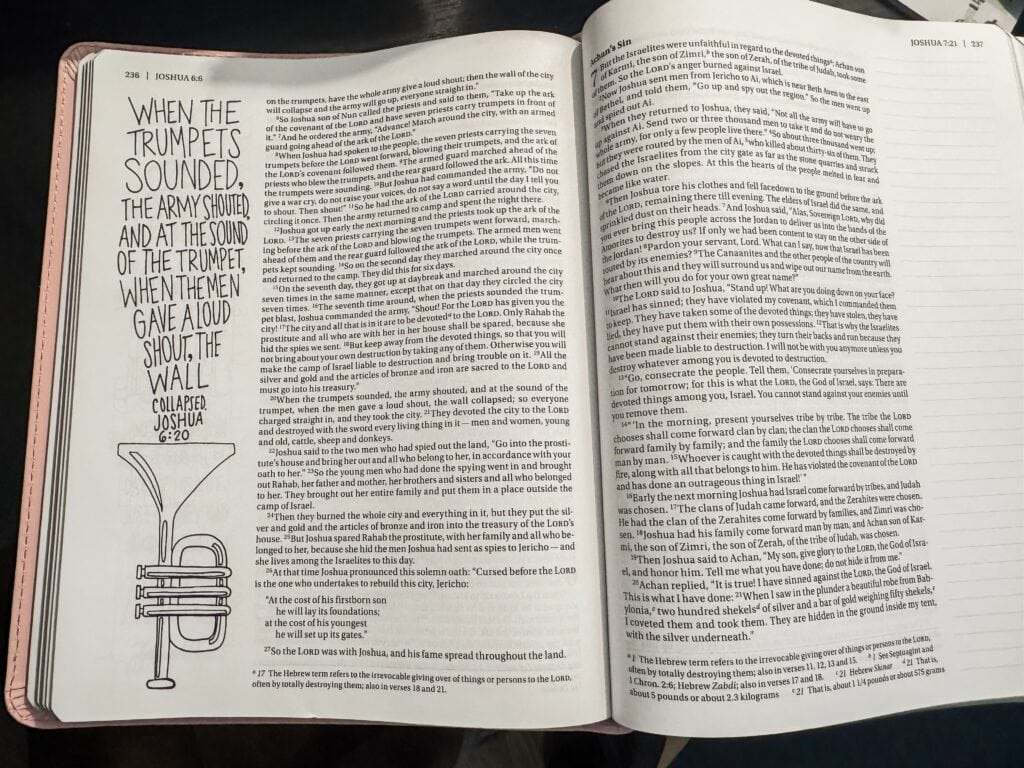 236 | JOSHUA 6:6
WHEN THE
TRUMPETS
SOUNDED,
THE ARMY SHOUTED,
AND AT THE SOUND
OF THE TRUMPET,
WHEN THE MEN
GAVE A LOUD
SHOUT, THE
WALL
COLLAPSED.
JOSHUA
6:20
on the trumpets, have the whole army give a loud shout; then the wall of the city
will collapse and the army will go up, everyone straight in.”
⁶So Joshua son of Nun called the priests and said to them, “Take up the ark
of the covenant of the LORD and have seven priests carry trumpets in front of
it.” ⁷And he ordered the army, “Advance! March around the city, with an armed
guard going ahead of the ark of the LORD.”
⁸When Joshua had spoken to the people, the seven priests carrying the seven
trumpets before the LORD went forward, blowing their trumpets, and the ark of
the LORD’s covenant followed them. ⁹The armed guard marched ahead of the
priests who blew the trumpets, and the rear guard followed the ark. All this time
the trumpets were sounding. ¹⁰But Joshua had commanded the army, “Do not
give a war cry, do not raise your voices, do not say a word until the day I tell you
to shout. Then shout!” ¹¹So he had the ark of the LORD carried around the city,
circling it once. Then the army returned to camp and spent the night there.
¹²Joshua got up early the next morning and the priests took up the ark of the
LORD. ¹³The seven priests carrying the seven trumpets went forward, march-
ing before the ark of the LORD and blowing the trumpets. The armed men went
ahead of them and the rear guard followed the ark of the LORD, while the trum-
pets kept sounding. ¹⁴So on the second day they marched around the city once
and returned to the camp. They did this for six days.
¹⁵On the seventh day, they got up at daybreak and marched around the city
seven times in the same manner, except that on that day they circled the city
seven times. ¹⁶The seventh time around, when the priests sounded the trum-
pet blast, Joshua commanded the army, “Shout! For the LORD has given you the
city! ¹⁷The city and all that is in it are to be devotedᵃ to the LORD. Only Rahab the
prostitute and all who are with her in her house shall be spared, because she
hid the spies we sent. ¹⁸But keep away from the devoted things, so that you will
not bring about your own destruction by taking any of them. Otherwise you will
make the camp of Israel liable to destruction and bring trouble on it. ¹⁹All the
silver and gold and the articles of bronze and iron are sacred to the LORD and
must go into his treasury.”
²⁰When the trumpets sounded, the army shouted, and at the sound of the
trumpet, when the men gave a loud shout, the wall collapsed; so everyone
charged straight in, and they took the city. ²¹They devoted the city to the LORD
and destroyed with the sword every living thing in it — men and women, young
and old, cattle, sheep and donkeys.
²²Joshua said to the two men who had spied out the land, “Go into the prosti-
tute’s house and bring her out and all who belong to her, in accordance with your
oath to her.” ²³So the young men who had done the spying went in and brought
out Rahab, her father and mother, her brothers and sisters and all who belonged
to her. They brought out her entire family and put them in a place outside the
camp of Israel.
²⁴Then they burned the whole city and everything in it, but they put the sil-
ver and gold and the articles of bronze and iron into the treasury of the LORD’s
house. ²⁵But Joshua spared Rahab the prostitute, with her family and all who be-
longed to her, because she hid the men Joshua had sent as spies to Jericho — and
she lives among the Israelites to this day.
²⁶At that time Joshua pronounced this solemn oath: “Cursed before the LORD
is the one who undertakes to rebuild this city, Jericho:
“At the cost of his firstborn son
he will lay its foundations;
at the cost of his youngest
he will set up its gates.”
²⁷So the LORD was with Joshua, and his fame spread throughout the land.
ᵃ 17 The Hebrew term refers to the irrevocable giving over of things or persons to the LORD,
often by totally destroying them; also in verses 18 and 21.
JOSHUA 7:21 | 237
Achan’s Sin
7 But the Israelites were unfaithful in regard to the devoted thingsᵃ; Achan son
of Karmi, the son of Zimri,ᵇ the son of Zerah, of the tribe of Judah, took some
of them. So the LORD’s anger burned against Israel.
²Now Joshua sent men from Jericho to Ai, which is near Beth Aven to the east
of Bethel, and told them, “Go up and spy out the region.” So the men went up
and spied out Ai.
³When they returned to Joshua, they said, “Not all the army will have to go
up against Ai. Send two or three thousand men to take it and do not weary the
whole army, for only a few people live there.” ⁴So about three thousand went up;
but they were routed by the men of Ai, ⁵who killed about thirty-six of them. They
chased the Israelites from the city gate as far as the stone quarries and struck
them down on the slopes. At this the hearts of the people melted in fear and
became like water.
⁶Then Joshua tore his clothes and fell facedown to the ground before the ark
of the LORD, remaining there till evening. The elders of Israel did the same, and
sprinkled dust on their heads. ⁷And Joshua said, “Alas, Sovereign LORD, why did
you ever bring this people across the Jordan to deliver us into the hands of the
Amorites to destroy us? If only we had been content to stay on the other side of
the Jordan! ⁸Pardon your servant, Lord. What can I say, now that Israel has been
routed by its enemies? ⁹The Canaanites and the other people of the country will
hear about this and they will surround us and wipe out our name from the earth.
What then will you do for your own great name?”
¹⁰The LORD said to Joshua, “Stand up! What are you doing down on your face?
¹¹Israel has sinned; they have violated my covenant, which I commanded them
to keep. They have taken some of the devoted things; they have stolen, they have
lied, they have put them with their own possessions. ¹²That is why the Israelites
cannot stand against their enemies; they turn their backs and run because they
have been made liable to destruction. I will not be with you anymore unless you
destroy whatever among you is devoted to destruction.
¹³“Go, consecrate the people. Tell them, ‘Consecrate yourselves in prepara-
tion for tomorrow; for this is what the LORD, the God of Israel, says: There are
devoted things among you, Israel. You cannot stand against your enemies until
you remove them.
¹⁴“ ‘In the morning, present yourselves tribe by tribe. The tribe the LORD
chooses shall come forward clan by clan; the clan the LORD chooses shall come
forward family by family; and the family the LORD chooses shall come forward
man by man. ¹⁵Whoever is caught with the devoted things shall be destroyed by
fire, along with all that belongs to him. He has violated the covenant of the LORD
and has done an outrageous thing in Israel!’ ”
¹⁶Early the next morning Joshua had Israel come forward by tribes, and Judah
was chosen. ¹⁷The clans of Judah came forward, and the Zerahites were chosen.
He had the clan of the Zerahites come forward by families, and Zimri was cho-
sen. ¹⁸Joshua had his family come forward man by man, and Achan son of Kar-
mi, the son of Zimri, the son of Zerah, of the tribe of Judah, was chosen.
¹⁹Then Joshua said to Achan, “My son, give glory to the LORD, the God of Isra-
el, and honor him. Tell me what you have done; do not hide it from me.”
²⁰Achan replied, “It is true! I have sinned against the LORD, the God of Israel.
This is what I have done: ²¹When I saw in the plunder a beautiful robe from Bab-
ylonia,ᶜ two hundred shekelsᵈ of silver and a bar of gold weighing fifty shekels,ᵉ
I coveted them and took them. They are hidden in the ground inside my tent,
with the silver underneath.”
ᵃ 1 The Hebrew term refers to the irrevocable giving over of things or persons to the LORD,
often by totally destroying them; also in verses 11, 12, 13 and 15. ᵇ 1 See Septuagint and
1 Chron. 2:6; Hebrew Zabdi; also in verses 17 and 18. ᶜ 21 Hebrew Shinar ᵈ 21 That is,
about 5 pounds or about 2.3 kilograms ᵉ 21 That is, about 1 1/4 pounds or about 575 grams